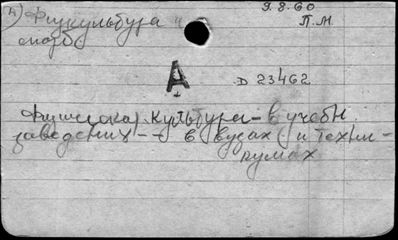 4) Физкультура и 9.8.60
спорт П.М.
А
D 23462
Физическая культура – в учебн.
заведениях – – в вузах и техни-
кумах